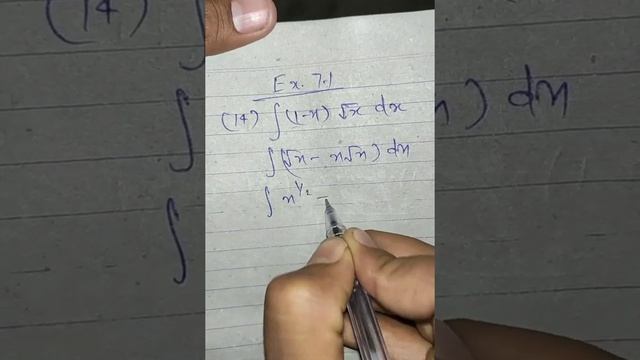 Ex. 7.1
(14) ∫ (1-x) √x dx
∫ (√x - x√x) dx
∫ x^1/2 -